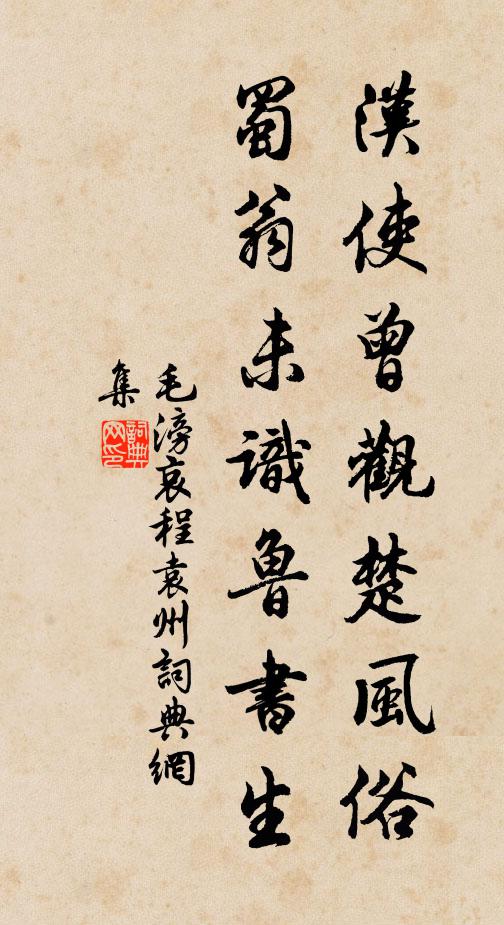 漢使曾觀楚風俗
蜀翁未識魯書生
毛滂哀程袁州詞典網
集
詞典網印